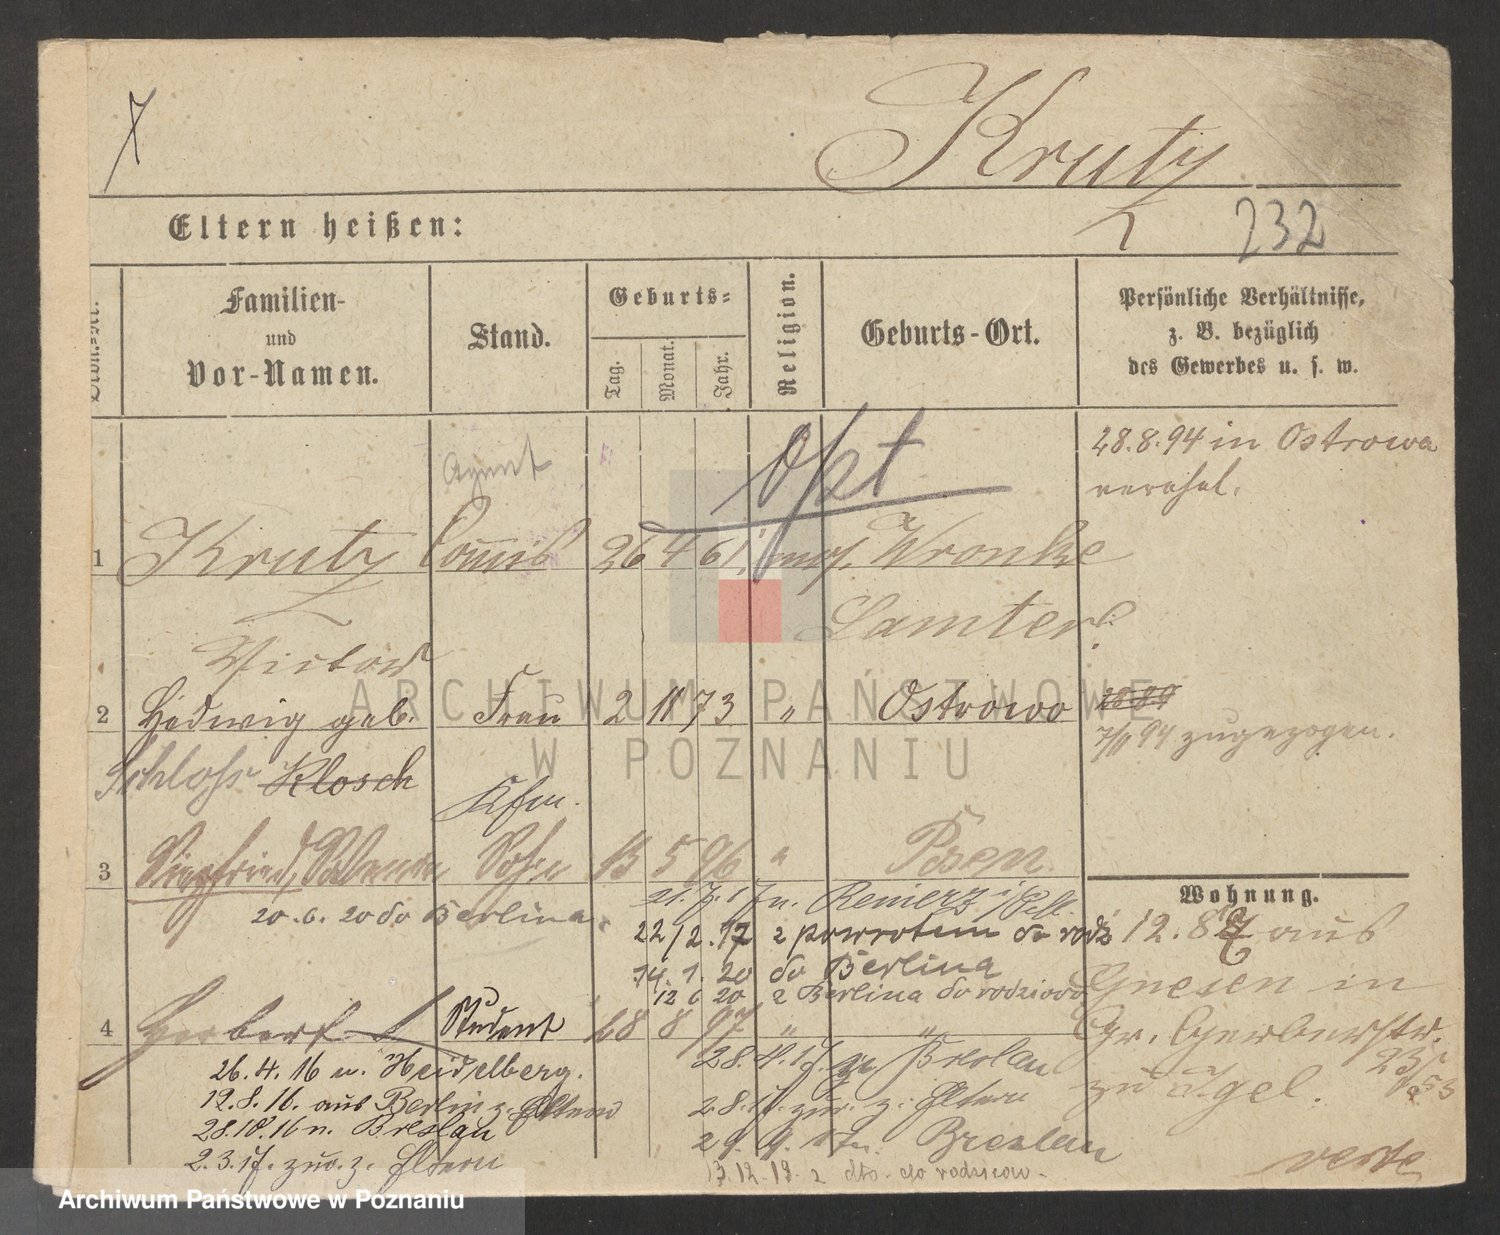 Krutz
232
Eltern heißen:
Familien-
und
Vor-Namen.
Stand.
Geburts-
Tag.
Monat.
Jahr.
Religion.
Geburts-Ort.
Persönliche Verhältnisse,
z. B. bezüglich
des Gewerbes u. s. w.
Agent
Opt
28.8.94 in Ostrowo
verehel.
1 Krutz Commis 26 4 61 mos. Wronke
Samter
Victor
2 Hedwig geb. Frau 2 11 73 " Ostrowo
7/11 94 zugezogen.
Schloss Klosch
Kfm.
3 Siegfried, Sohn 13 5 96 " Posen
21.7.17 n. Reinerz
Wohnung.
20.6.20 do Berlina
22/2.17 z powrotem do rodz
12.87 aus
14.1.20 do Berlina
12 6 20 z Berlina do rodziców
Gnesen in
4 Herbert Student 28 8 97 " "
Gr. Gerberstr.
23/
53
26.4.16 n. Heidelberg.
28.4.17 n. Breslau
zu Igel.
19.8.16. aus Berlin z. Eltern
2.8.17. zur. z. Eltern
28.10.16 n. Breslau
29.9.17 n. Breslau
2.3.17. zur. z. Eltern
13.12.18. z dto. do rodziców.
verte
ARCHIWUM PAŃSTWOWE
W POZNANIU
Archiwum Państwowe w Poznaniu